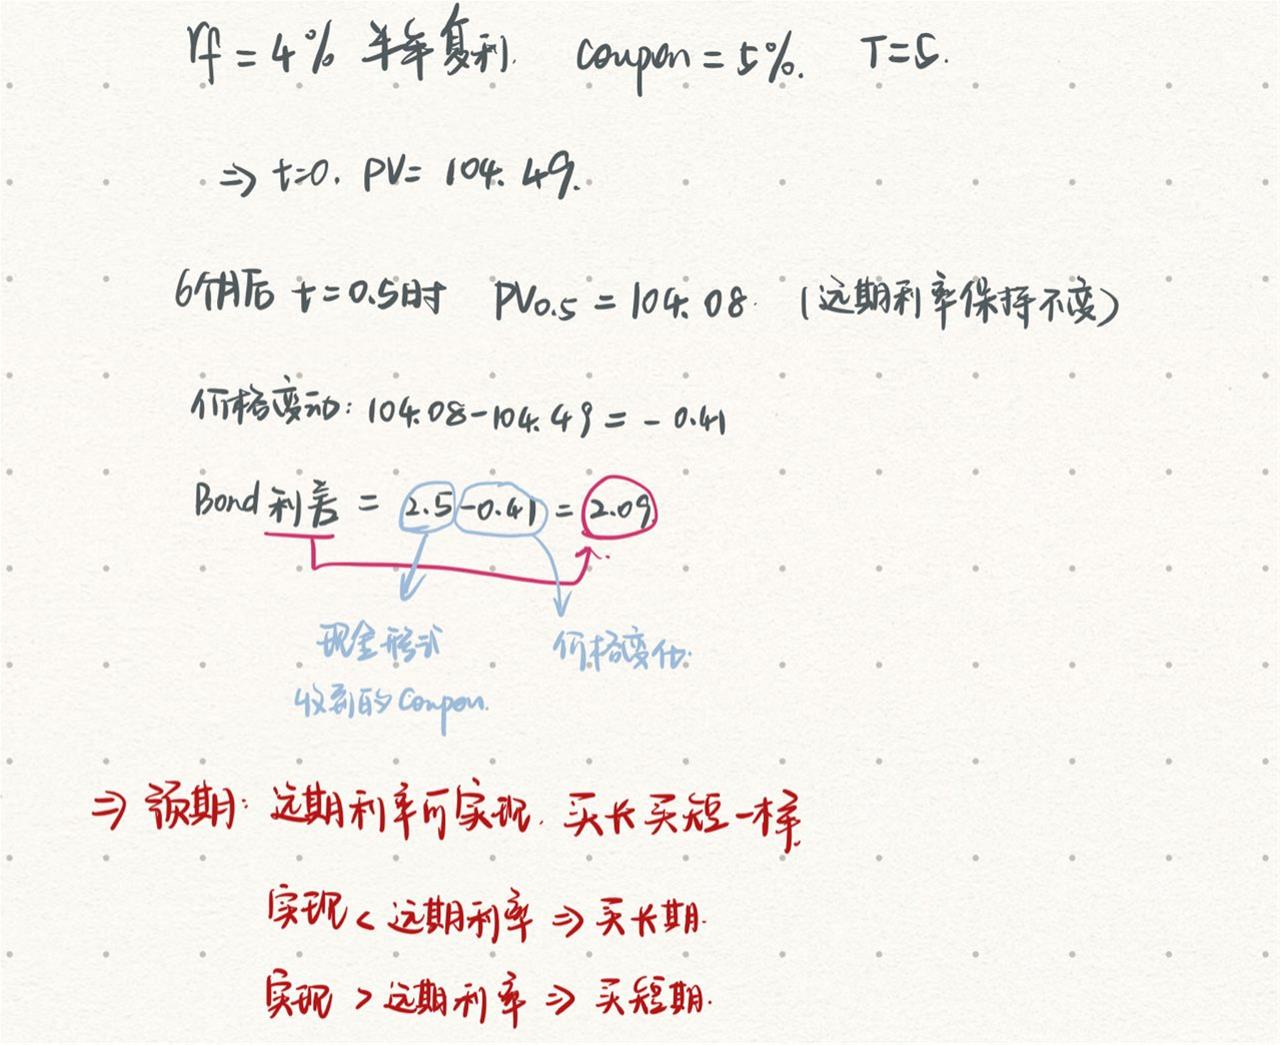 rf = 4% 半年复利. coupon = 5%. T=5.
⇒ t=0. PV= 104.49.
6个月后 t=0.5时 PV0.5 = 104.08. (远期利率保持不变)
价格变动: 104.08-104.49 = - 0.41
Bond 利差 = 2.5 -0.41 = 2.09
现金形式 价格变化.
收到的 Coupon.
⇒ 预期: 远期利率可实现. 买长买短一样.
实现 < 远期利率 ⇒ 买长期.
实现 > 远期利率 ⇒ 买短期.